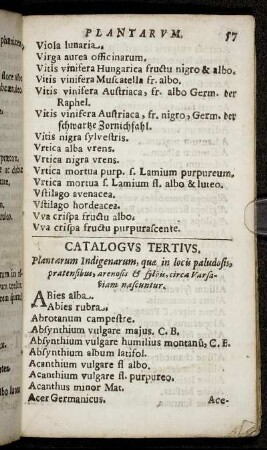 PLANTARVM. 57
Viola lunaria.
Virga aurea officinarum.
Vitis vinifera Hungarica fructu nigro & albo.
Vitis vinifera Muscatella fr. albo.
Vitis vinifera Austriaca, fr. albo Germ. der
Raphel.
Vitis vinifera Austriaca, fr. nigro, Germ. der
schwartze Zornichfahl.
Vitis nigra sylvestris.
Vrtica alba vrens.
Vrtica nigra vrens.
Vrtica mortua purp. s. Lamium purpureum.
Vrtica mortua s. Lamium fl. albo & luteo.
Vstilago avenacea.
Vstilago hordeacea.
Vva crispa fructu albo.
Vva crispa fructu purpurascente.
CATALOGVS TERTIVS,
Plantarum Indigenarum, quæ in locis paludosis,
pratensibus, arenosis & sylvis, circa Varsa-
viam nascuntur.
ABies alba.
Abies rubra.
Abrotanum campestre.
Absynthium vulgare majus. C. B.
Absynthium vulgare humilius montanũ, C. B.
Absynthium album latifol.
Acanthium vulgare fl albo.
Acanthium vulgare fl. purpureo.
Acanthus minor Mat.
Acer Germanicus.
Ace-